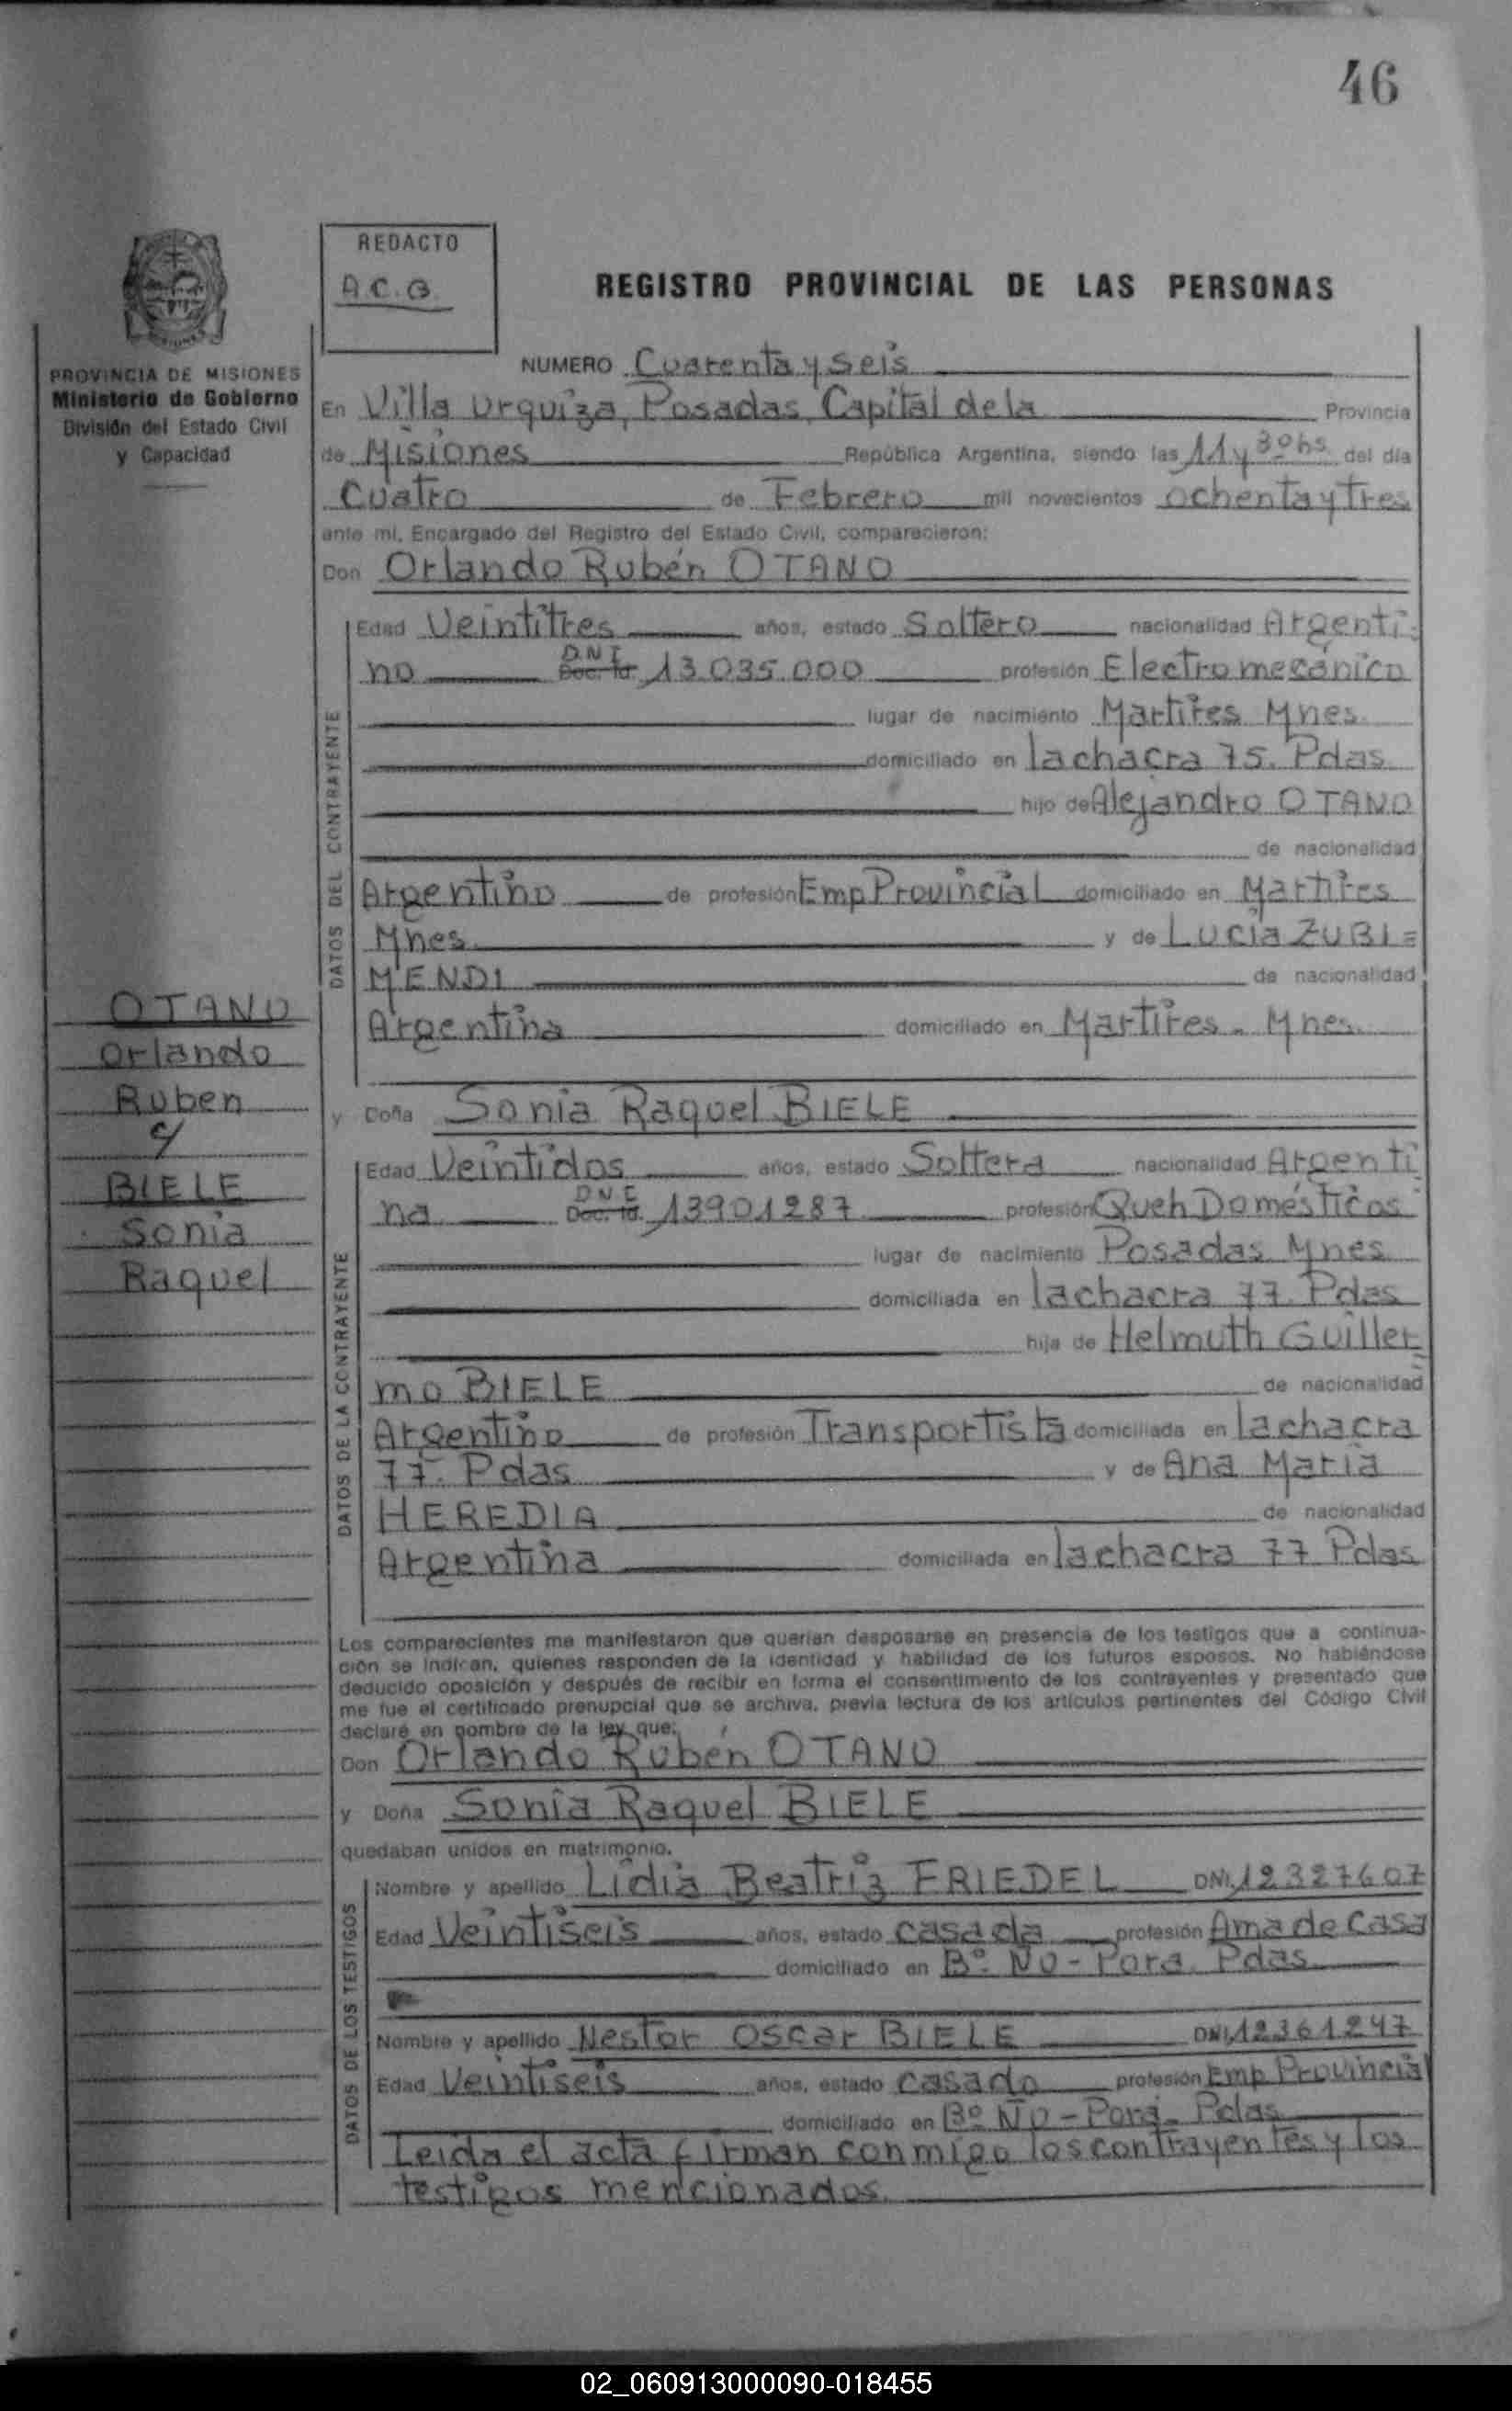 46
REDACTO
A.C.B.
REGISTRO PROVINCIAL DE LAS PERSONAS
PROVINCIA DE MISIONES
Ministerio de Gobierno
División del Estado Civil
y Capacidad
NUMERO Cuarenta y Seis
En Villa Urquiza, Posadas, Capital de la Provincia
de Misiones República Argentina, siendo las 11 y 30 hs del día
Cuatro de Febrero mil novecientos ochenta y Tres
ante mí, Encargado del Registro del Estado Civil, comparecieron:
Don Orlando Rubén OTANO
Edad Veintitres años, estado Soltero nacionalidad Argenti-
no D.N.I. Doc. Id. 13.035.000 profesión Electromecánico
lugar de nacimiento Martires Mnes
domiciliado en la chacra 75. Pdas
hijo de Alejandro OTANO
de nacionalidad
Argentino de profesión Emp Provincial domiciliado en Martires
Mnes y de Lucia ZUBI=
MENDI de nacionalidad
Argentina domiciliado en Martires - Mnes
DATOS DEL CONTRAYENTE
OTANO
Orlando
Ruben
c/
BIELE
Sonia
Raquel
y Doña Sonia Raquel BIELE
Edad Veintidos años, estado Soltera nacionalidad Argenti
na D.N.I. Doc. Id. 13901287 profesión Queh Domésticos
lugar de nacimiento Posadas Mnes
domiciliada en la chacra 77. Pdas
hija de Helmuth Guiller=
mo BIELE de nacionalidad
Argentino de profesión Transportista domiciliada en la chacra
77. Pdas y de Ana Maria
HEREDIA de nacionalidad
Argentina domiciliada en la chacra 77 Pdas
DATOS DE LA CONTRAYENTE
Los comparecientes me manifestaron que querían desposarse en presencia de los testigos que a continua-
ción se indican, quienes responden de la identidad y habilidad de los futuros esposos. No habiéndose
deducido oposición y después de recibir en forma el consentimiento de los contrayentes y presentado que
me fue el certificado prenupcial que se archiva, previa lectura de los artículos pertinentes del Código Civil
declaré en nombre de la ley que:
Don Orlando Rubén OTANO
y Doña Sonia Raquel BIELE
quedaban unidos en matrimonio.
Nombre y apellido Lidia Beatriz FRIEDEL DNI. 12327607
Edad Veintiseis años, estado casada profesión Ama de Casa
domiciliado en Bº Ñu-Porá. Pdas
Nombre y apellido Nestor Oscar BIELE DNI 12361247
Edad Veintiseis años, estado casado profesión Emp Provincial
domiciliado en Bº Ñu-Porá. Pdas
DATOS DE LOS TESTIGOS
Leida el acta firman conmigo los contrayentes y los
testigos mencionados.
02_060913000090-018455